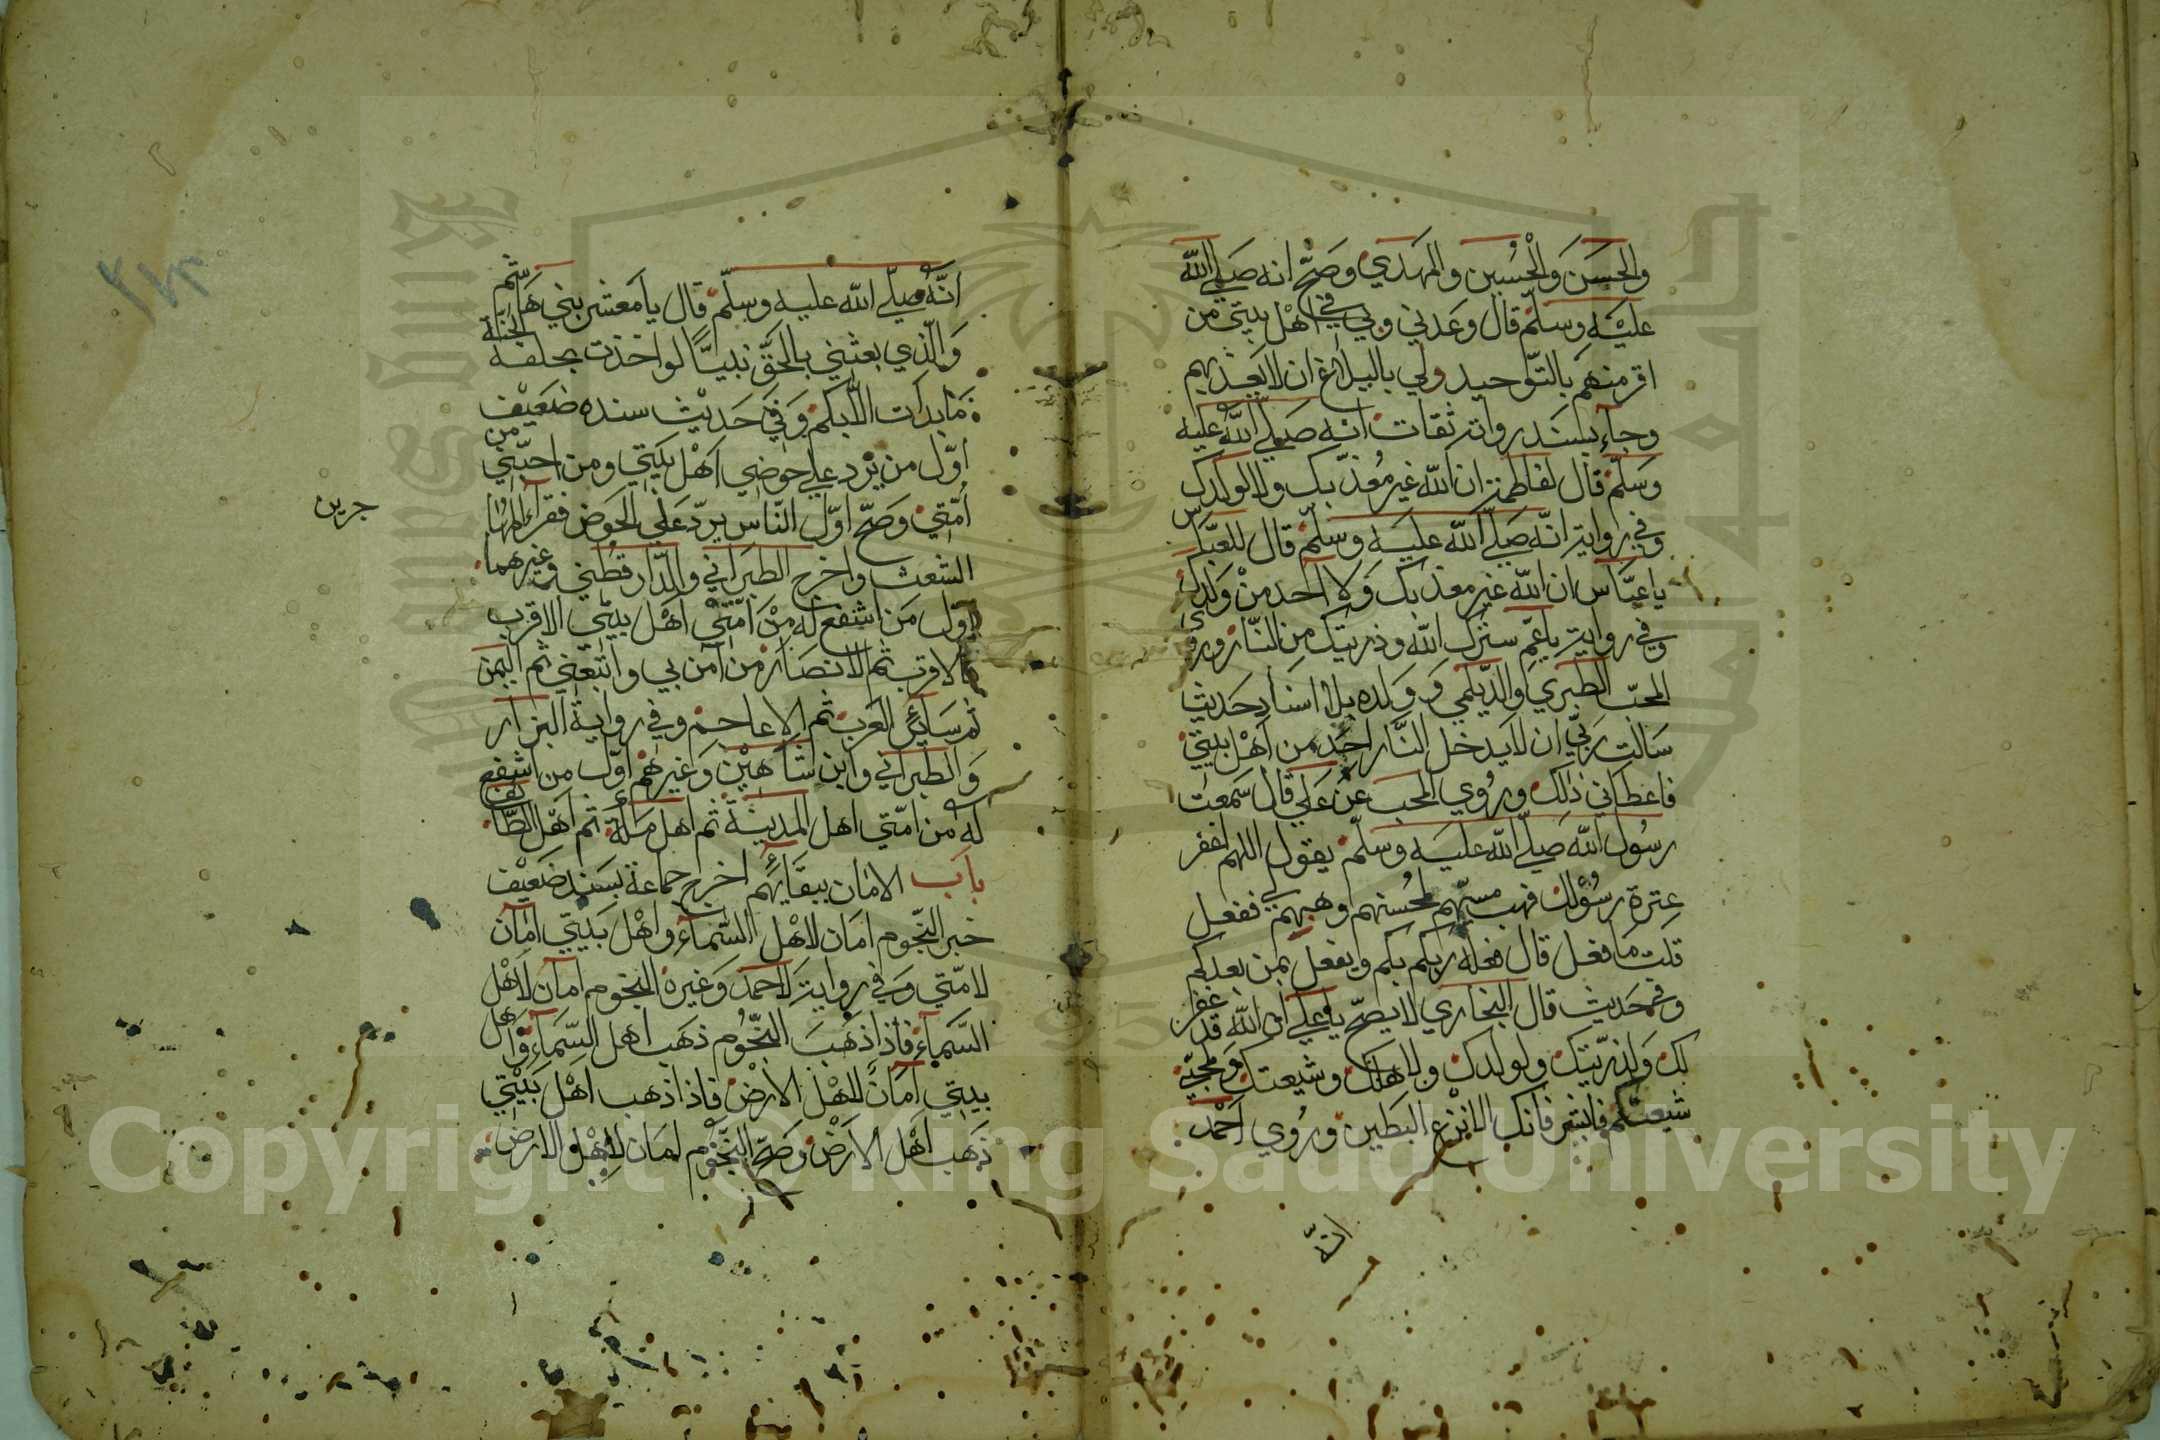 والحسَن وَالْحُسين والمهدي وصَحّ انه صَلي الله
عليْه وسلم قال وعدني ربي في اهْل بيتي من
اقر منهم بالتّوحيد ولي بالبلاغ ان لا يعَذبهم
وجاء بسَند رواته ثقات انه صَلي الله عليه
وَسلم قال لفاطمة ان الله غير مُعذبك ولا ولدك
وفي رواية انّه صَلي الله عليه وسلم قال للعبَّاس
يا عبّاس ان الله غير معذبك وَلا احد منْ وَلدك
وفي رواية يا عَمّ سترك الله وذريتك من النّار وروي
المحبّ الطبري والدّيلمي وَوَلده بلا اسنادٍ حَديث
سَالت رَبّي ان لا يدخل النّار احَد من اهْل بيتي
فاعطَاني ذلك ورُوي المحب عنْ عَلي قال سَمعت
رسُول الله صَلّي الله عليه وسلم يقول اللهم اغفر
عِترة رسُوْلك فهب مسيّهم لمحُسنهم وهبهم لي ففعل
قلت مَا فعل قال فعله ربكم بكم ويفعل بمن بعدكم
وفي حَديث قال البخاري لا يصحّ يا علي ان الله قد غفر
لك وَلذرّيتك ولولدك ولاهلك وشيعتك وَلمحبّي
شيعتكم فابشر فانك الانزع البَطين ورُوي احَمْد
انّه
انّه صلّي الله عليه وسلّم قال يا مَعشر بني هَاشم
وَالّذي بعثني بالحَقّ نبيّا لو اخذت بحلقة الجَنّة
مَا بدَات الا بكم وَفي حَديْث سنده ضعَيْف
اوّل من يرد علي حوضي اهْل بَيتي ومن احبّني من
اُمّتي وصَحّ اوّل النّاس يرد عَلي الحَوض فقراء المهَا
جرين
الشعث واخرج الطبَراني والدّار قطني وغيرهما
اوّل مَن اشفع له مِنْ امّتي اهْل بيتي الاقرب
فالاقرب ثم الانصَار من آمن بي واتبعَني ثم اليَمن
ثم سَائر العَرب ثم الاعاجم وفي رواية البزار
وَالطبراني وابن شاهيْن وَغيرهمْ اوّل من اشفع
له من امّتي اهل المدينَة ثم اهل مكّة ثم اهْل الطّائف
باب الامَان ببقَائهم اخرج جماعَة بسَند ضعَيْف
خبر النّجوم امَان لاهْل السّماء واهْل بَيتي امَان
لامّتي وَفي رواية لاحَمد وَغيره النجوم امَان لاهْل
السَّماء فاذا ذهَبَ النّجُوم ذهَب اهل السّماء وَاهْل
بيتي امَان لاهْل الارْض فاذا ذهب اهْل بَيْتي
ذَهَب اهْل الارْض وَصَحّ النّجوم امَان لاهْل الارض